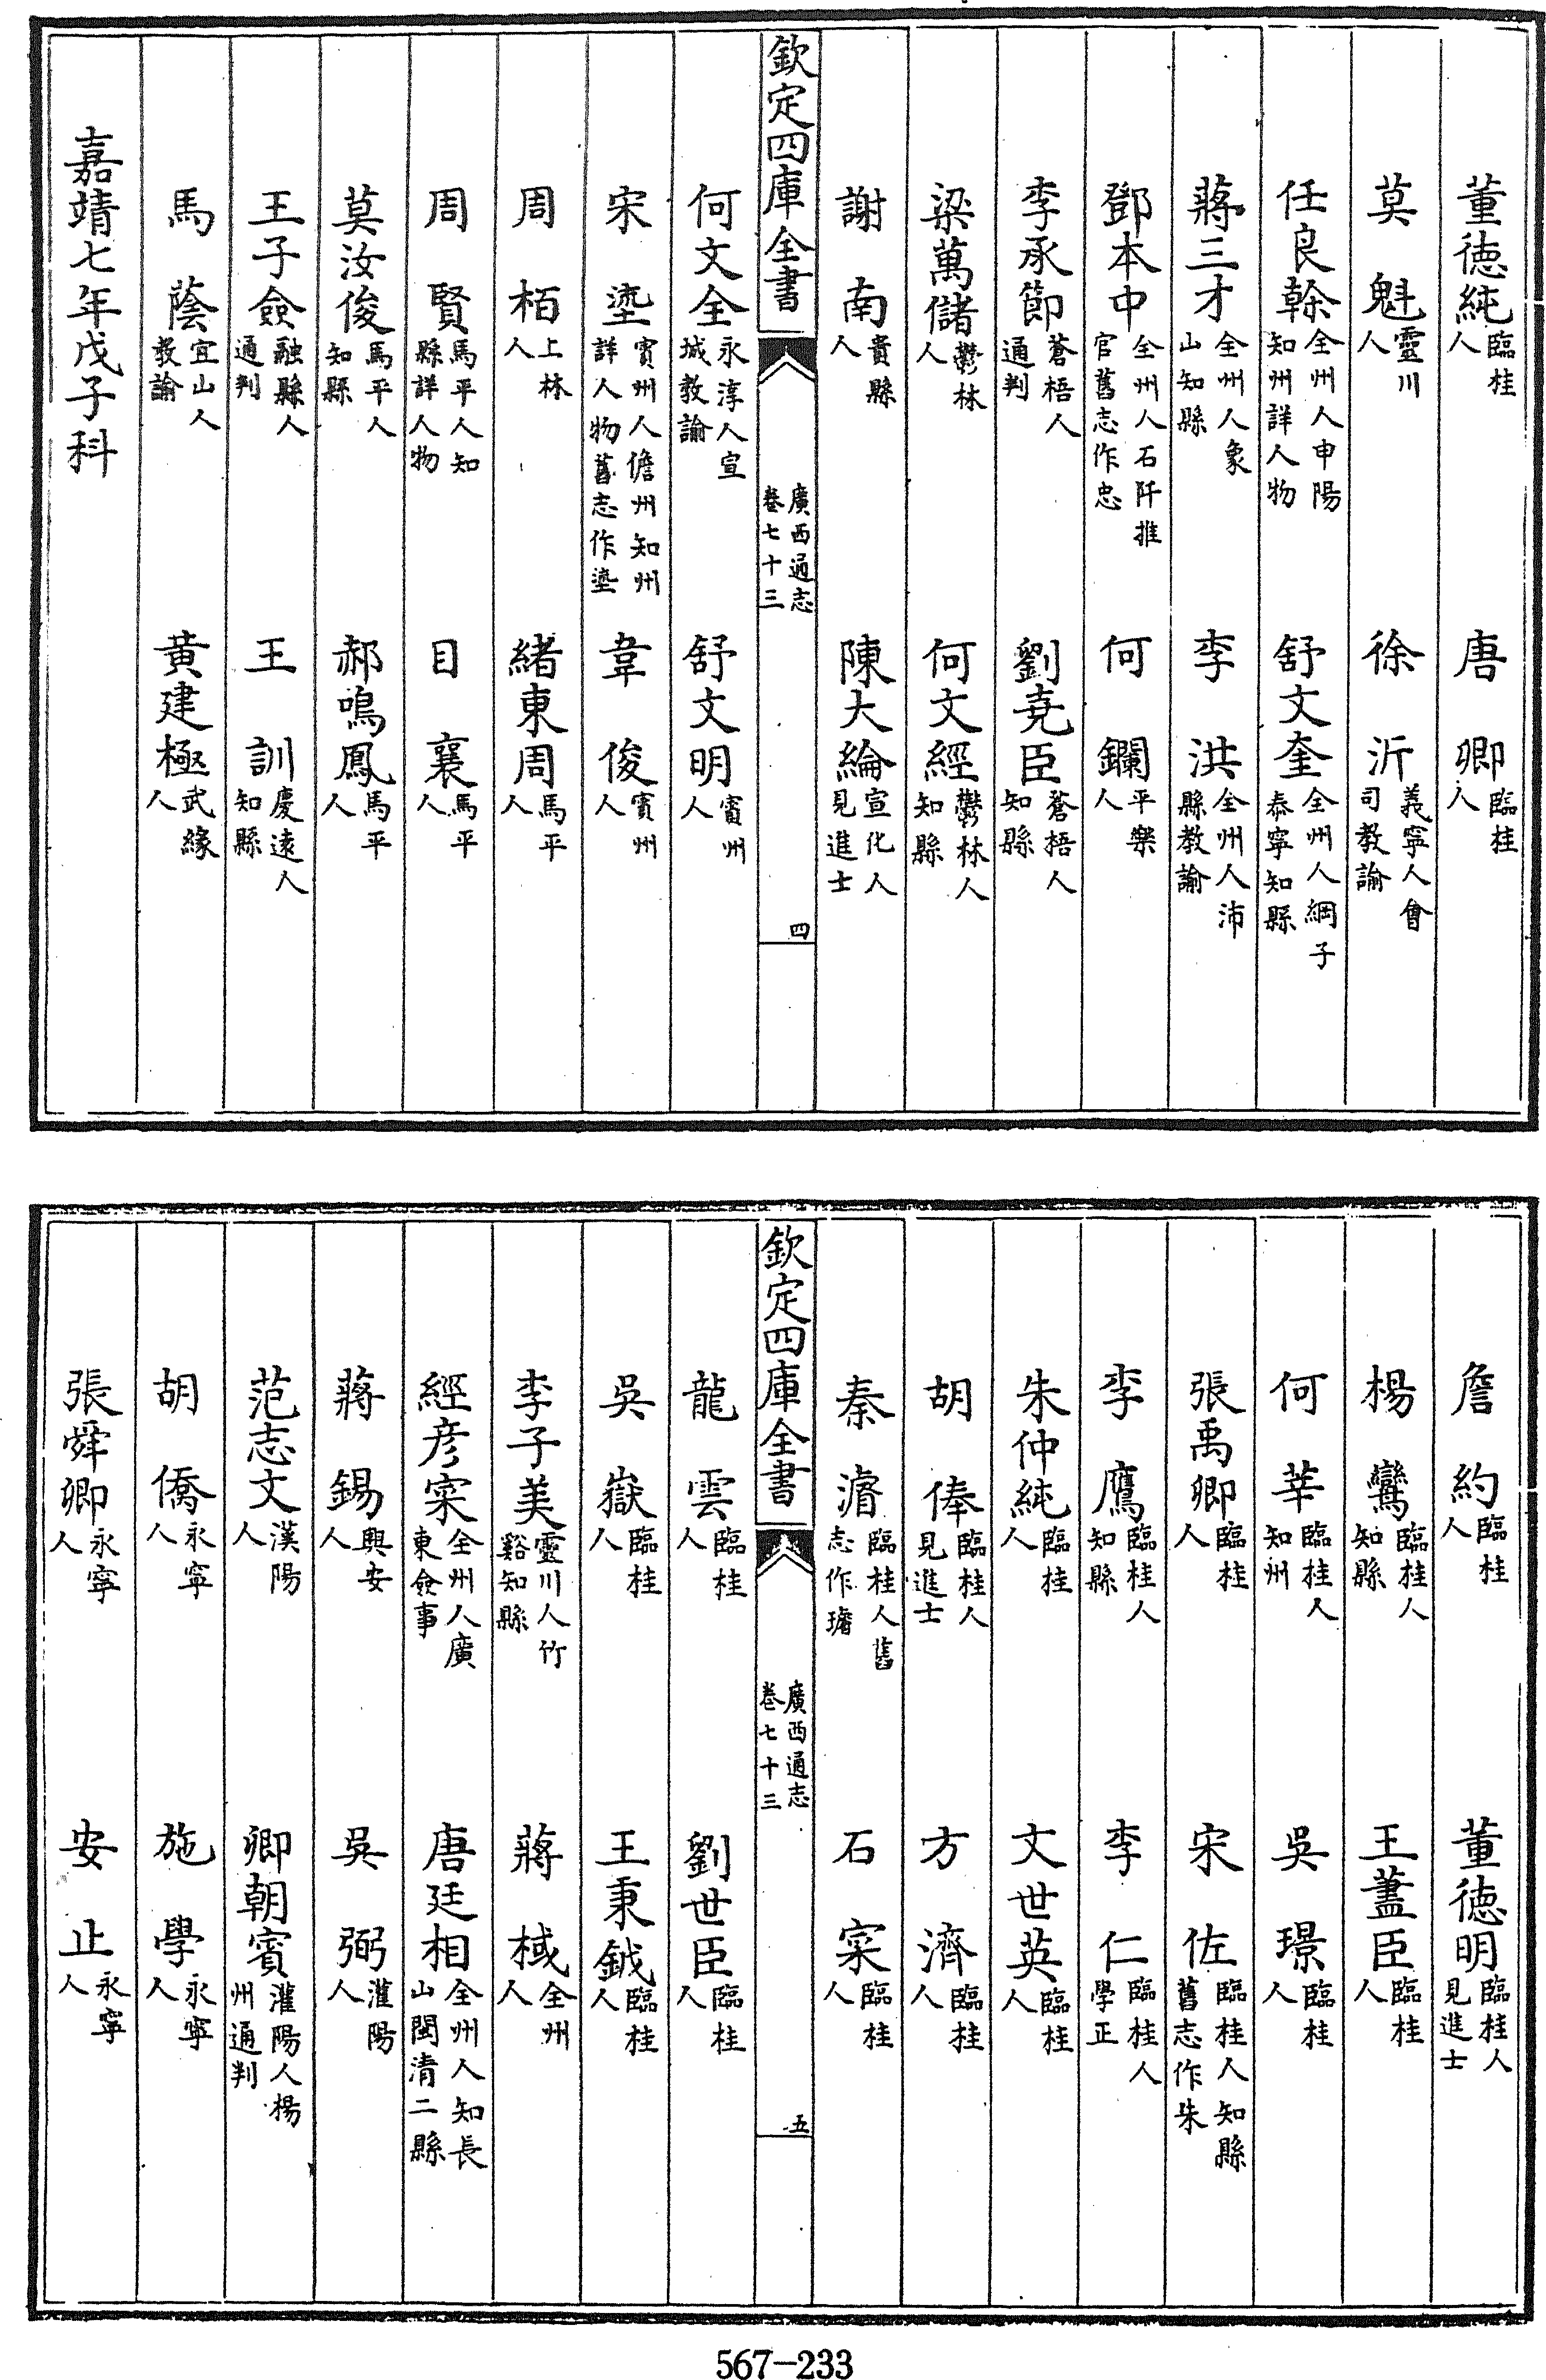 董徳純臨桂人　唐卿臨桂人
莫魁靈川人　徐沂義寧人會司教諭
任良榦全州人申陽知州詳人物　舒文奎全州人綱子泰寧知縣
蔣三才全州人象山知縣　李洪全州人沛縣教諭
鄧本中全州人石阡推官舊志作忠　何鑭平樂人
李承節蒼梧人通判　劉堯臣蒼梧人知縣
梁萬儲鬱林人　何文經鬱林人知縣
謝南貴縣人　陳大綸宣化人見進士
欽定四庫全書　廣西通志卷七十三　四
何文全永淳人宣城教諭　舒文明賓州人
宋塗賓州人儋州知州詳人物舊志作塗　韋俊賓州人
周栢上林人　緒東周馬平人
周賢馬平人知縣詳人物　目襄馬平人
莫汝俊馬平人知縣　郝鳴鳳馬平人
王子僉融縣人通判　王訓慶遠人知縣
馬蔭宜山人教諭　黄建極武緣人
嘉靖七年戊子科
詹約臨桂人　董徳明臨桂人見進士
楊鸞臨桂人知縣　王藎臣臨桂人
何莘臨桂人知州　吳璟臨桂人
張禹卿臨桂人　宋佐臨桂人知縣舊志作朱
李鷹臨桂人知縣　李仁臨桂人學正
朱仲純臨桂人　文世英臨桂人
胡俸臨桂人見進士　方濟臨桂人
秦濬臨桂人舊志作璿　石寀臨桂人
欽定四庫全書　廣西通志卷七十三　五
龍雲臨桂人　劉世臣臨桂人
吳嶽臨桂人　王秉鉞臨桂人
李子美靈川人竹谿知縣　蔣棫全州人
經彦寀全州人廣東僉事　唐廷相全州人知長山閩清二縣
蔣錫興安人　吳弼灌陽人
范志文漢陽人　卿朝賓灌陽人楊州通判
胡僑永寧人　施學永寧人
張舜卿永寧人　安止永寧人
567-233